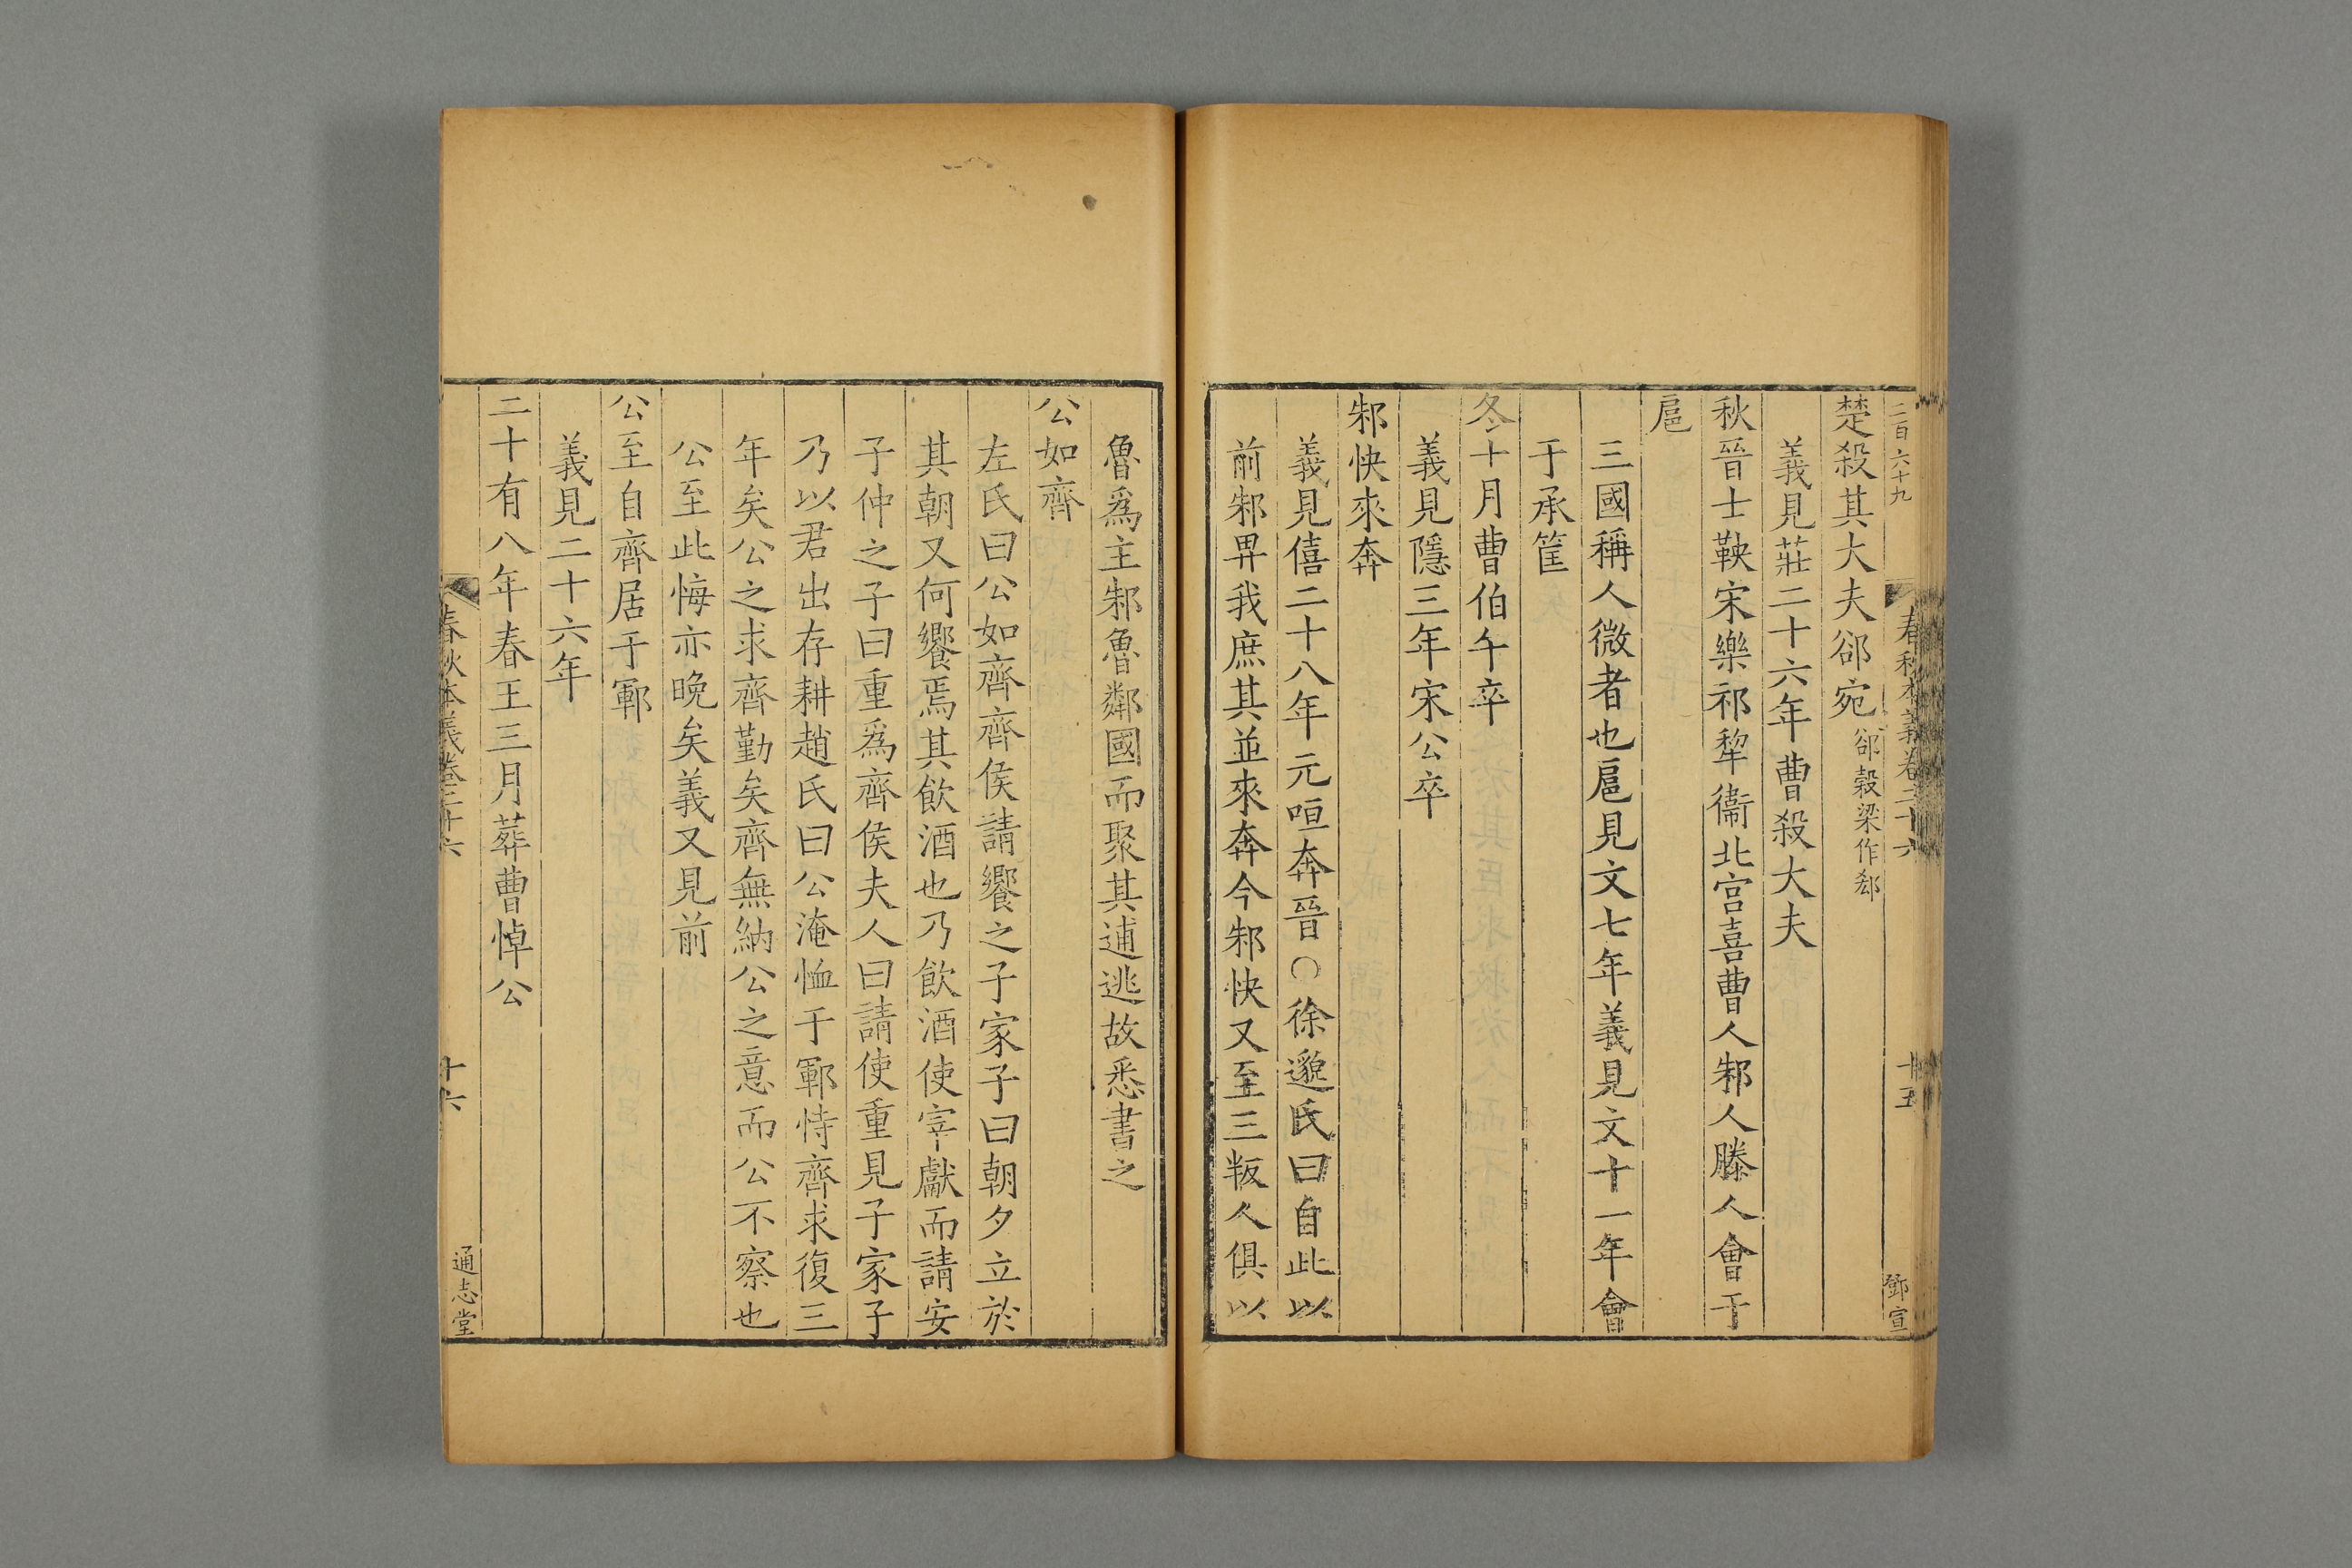 二百六十九
春秋本義卷二十六
十五
鄧宣
楚殺其大夫郤宛郤穀梁作郄
義見莊二十六年曹殺大夫
秋晉士鞅宋樂祁犂衞北宮喜曹人邾人滕人會于
扈
三國稱人微者也扈見文七年義見文十一年會
于承筐
冬十月曹伯午卒
義見隱三年宋公卒
邾快來奔
義見僖二十八年元咺奔晉○徐邈氏曰自此以
前邾畀我庶其並來奔今邾快又至三叛人俱以
魯爲主邾魯鄰國而聚其逋逃故悉書之
公如齊
左氏曰公如齊齊侯請饗之子家子曰朝夕立於
其朝又何饗焉其飲酒也乃飲酒使宰獻而請安
子仲之子曰重爲齊侯夫人曰請使重見子家子
乃以君出存耕趙氏曰公淹恤于鄆恃齊求復三
年矣公之求齊勤矣齊無納公之意而公不察也
公至此悔亦晚矣義又見前
公至自齊居于鄆
義見二十六年
二十有八年春王三月葬曹悼公
春秋本義卷二十六
十六
通志堂